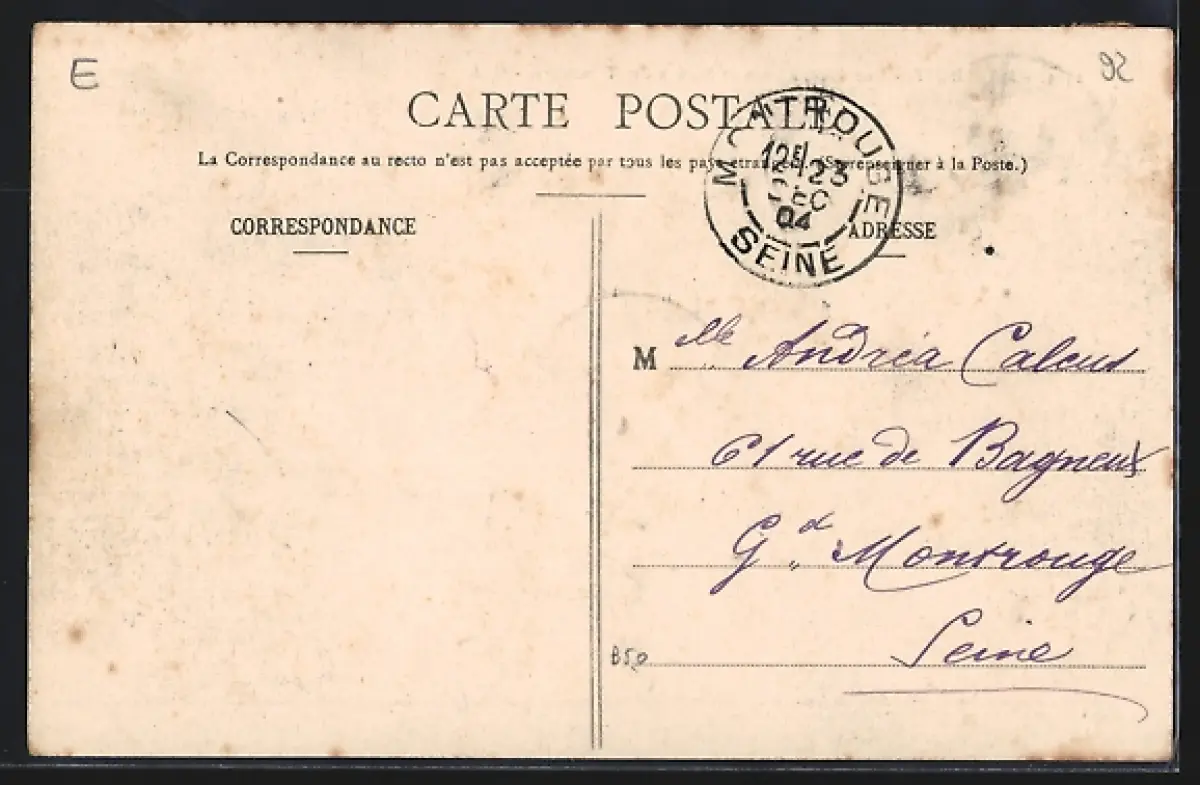 E
92
CARTE POSTALE
La Correspondance au recto n'est pas acceptée par tous les pays étrangers. (Se renseigner à la Poste.)
MONTROUGE
12E
23
DEC
04
SEINE
CORRESPONDANCE
ADRESSE
Mlle Andréa Calcus
61 rue de Bagneux
Gd Montrouge
Seine
B50